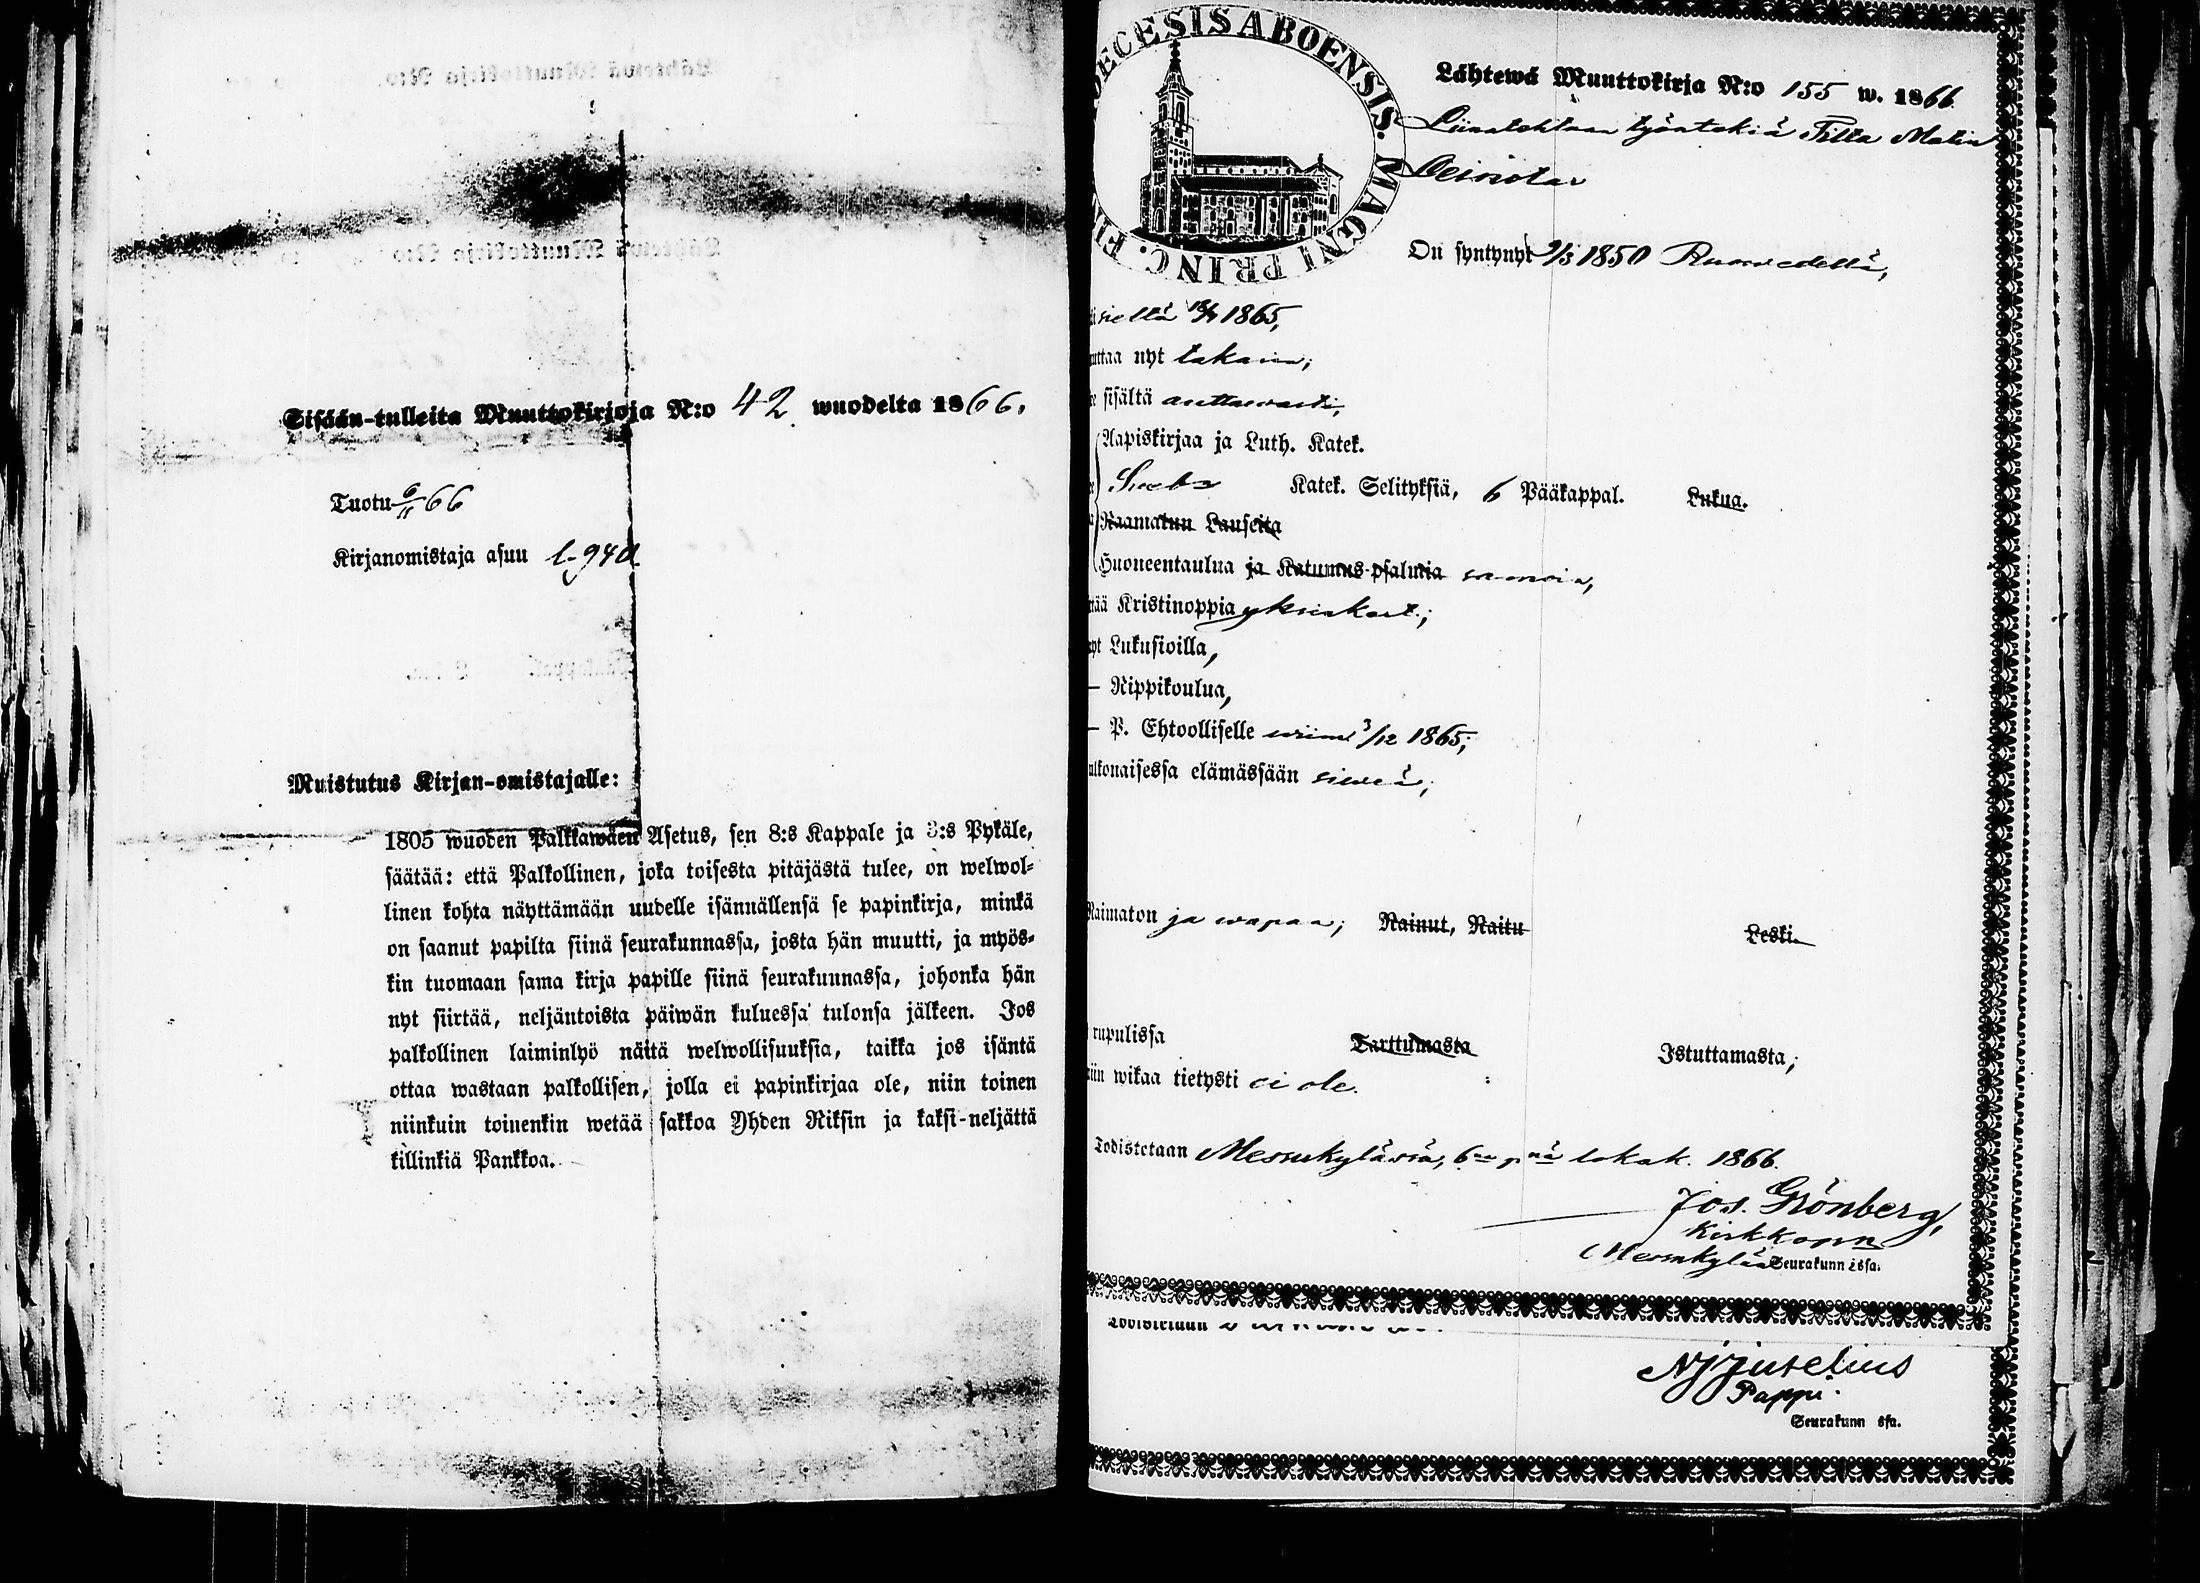 Sisään-tulleita Muuttokirjoja N:o 42 wuodelta 1866.
Tuotu 6/11 66
Kirjanomistaja asuu l. 940
Muistutus Kirjan-omistajalle:
1805 wuoden Palkkawäen Asetus, sen 8:s Kappale ja 3:s Pykäle,
säätää: että Palkollinen, joka toisesta pitäjästä tulee, on welwol-
linen kohta näyttämään uudelle isännällensä se papinkirja, minkä
on saanut papilta siinä seurakunnassa, josta hän muutti, ja myös-
kin tuomaan sama kirja papille siinä seurakunnassa, johonka hän
nyt siirtää, neljäntoista päiwän kuluessa tulonsa jälkeen. Jos
palkollinen laiminlyö näitä welwollisuuksia, taikka jos isäntä
ottaa wastaan palkollisen, jolla ei papinkirjaa ole, niin toinen
niinkuin toinenkin wetää sakkoa Yhden Riksin ja kaksi-neljättä
killinkiä Pankkoa.
ECESIS ABOENSIS. MAGNI PRINC. FI
Lähtewä Muuttokirja N:o 155 w. 1866.
työntekiä Matin
On syntynyt 9/3 1850 Ruowedellä,
sieltä 1865,
uttaa nyt takasin;
sisältä auttawasti,
Aapiskirjaa ja Luth. Katek.
Katek. Selityksiä, 6 Pääkappal. Lukua.
Raamatun Lauseita
Huoneentaulua ja Katumus-psalmia samoin,
tää Kristinoppia yksinkert.;
yt Lukusioilla,
— Rippikoulua,
— P. Ehtoolliselle wiime 3/12 1865;
ulkonaisessa elämässään siweä;
Naimaton ja wapaa; Nainut, Naitu Leski.
rupulissa Tarttumasta Istuttamasta;
iin wikaa tietysti ei ole.
Todistetaan Messukylässä, 6na pnä lokak. 1866.
Jos. Grönberg,
Kirkkoherra
Messukylän Seurakunnassa.
NJJuselius
Pappi.
Seurakunn ssa.